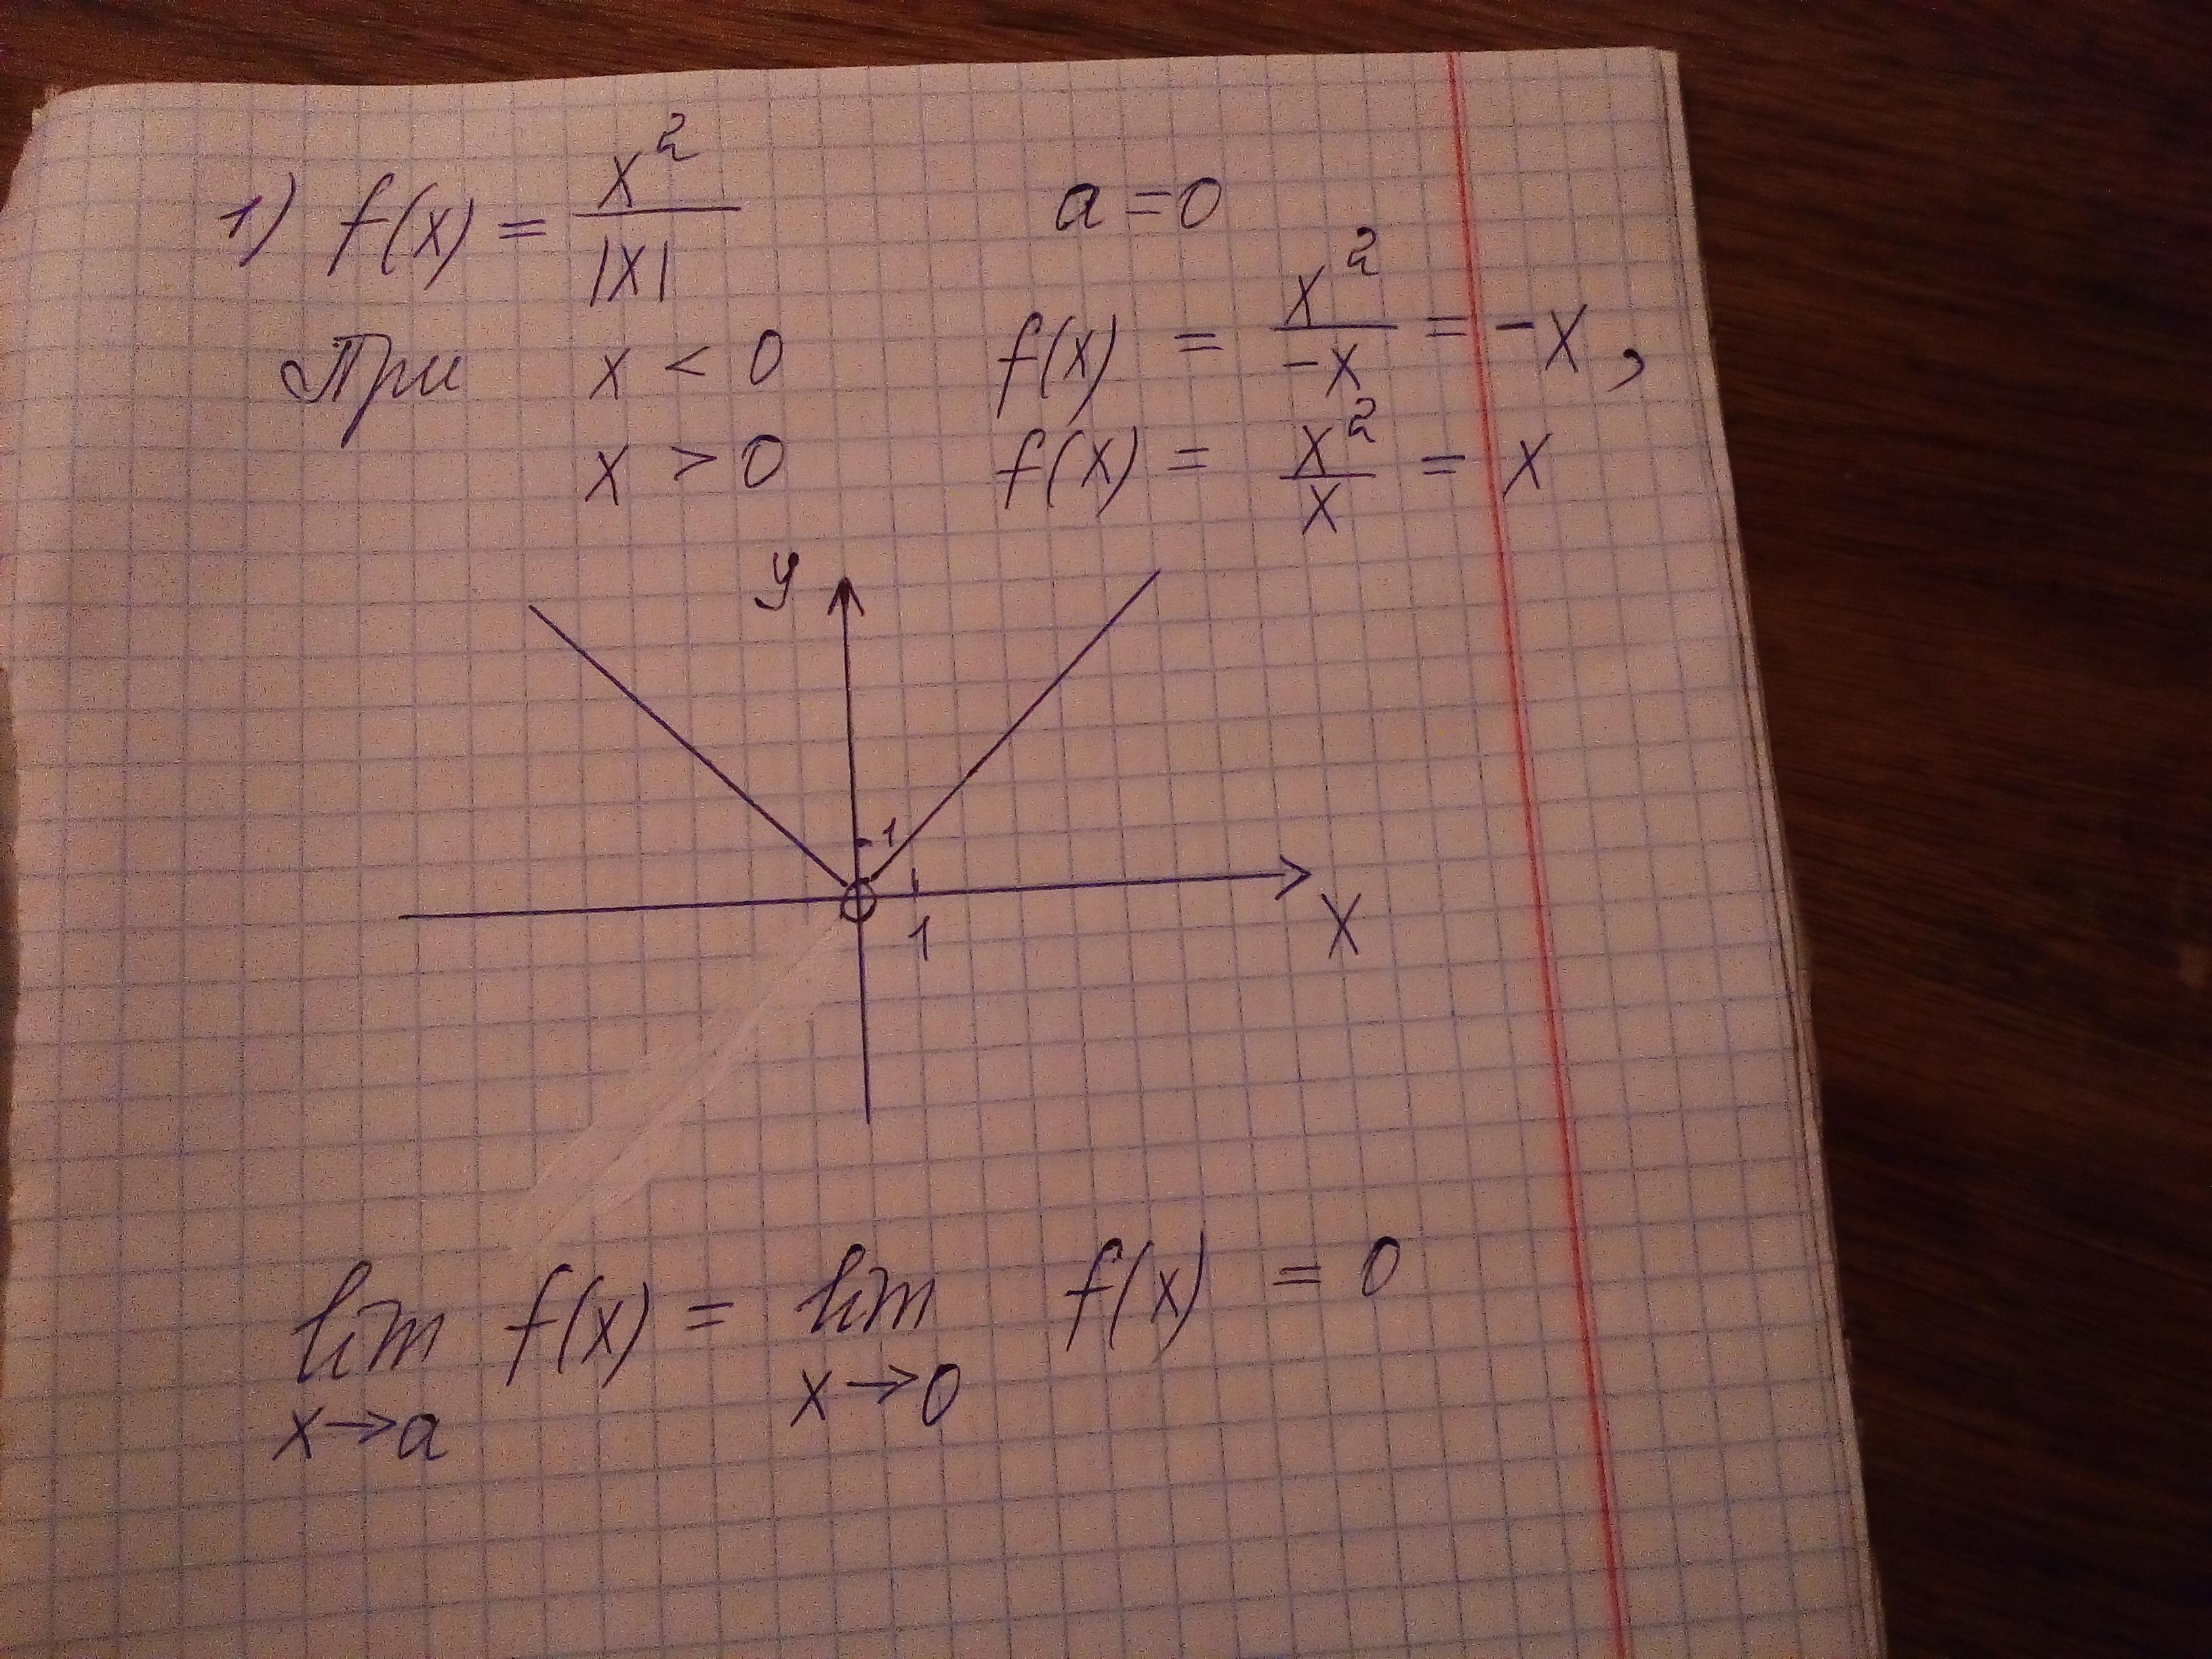 1) f(x) = x² / |x|   a = 0
При x < 0   f(x) = x² / -x = -x,
x > 0   f(x) = x² / x = x
y
1
1
x
lim f(x) = lim f(x) = 0
x→a   x→0